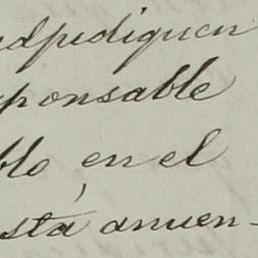 edpidiquen
ponsable
blo en el
stá anuen-